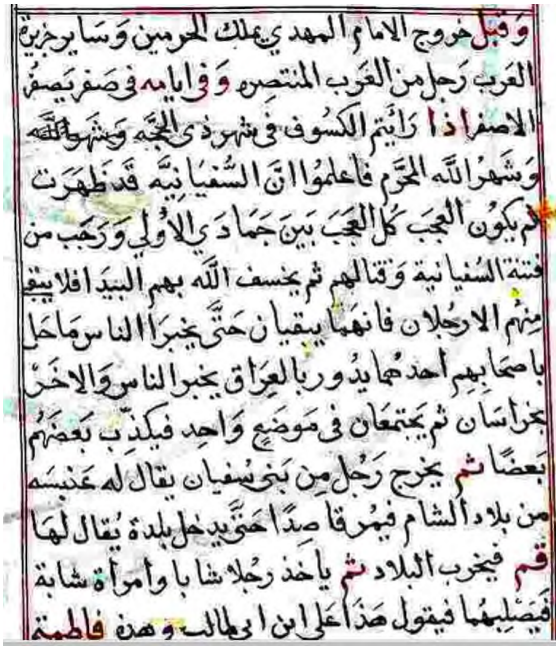 وَقبل خروج الامام المهدي يملك الحرمين وَسَاير جزيرة
العَرب رَجل من العَرب المنتصره وَفى ايامه فى صَفر يَصفرُ
الاصفر اذا رَايتم الكسوف فى شهر ذى الحجه وَشهر الله
وَشهرُ الله المحرَّم فاعلموا انّ السُّفيانيَّه قد ظهَرت
ثم يكون العجبَ كل العَجَب بَين جمادَي الأولي وَرَجَب من
فتنة السفيانية وَقتالهم ثم يخسف الله بهم البيدا فلا يبقي
مِنهُم الا رجُلان فانهما يبقيان حَتّي يخبرَا الناس مَا حَل
باصحابهم أحدهما يدُور بالعِراق يخبر الناس وَالاخَرُ
بخراسَان ثم يجتمعَان فى مَوضع وَاحد فيكذِّب بَعضهُم
بَعضًا ثم يخرج رَجُل مِن بَنى سُفيان يقال له عَنبسَه
من بلاد الشام فيمُر قاصِدًا حَتّي يدخل بلدة يُقال لهَا
قم فيخرب البلاد ثم يأخذ رجُلا شابا وأمرأة شابة
فيَصلبهُما فيقول هَذا علي ابن ابى طالب وهذه فاطمة